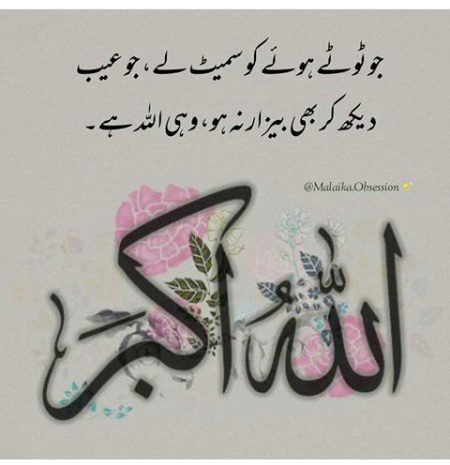 جو ٹوٹے ہوئے کو سمیٹ لے، جو عیب
دیکھ کر بھی بیزار نہ ہو، وہی اللہ ہے۔
@Malaika.Obsession
اللهُ اكبر